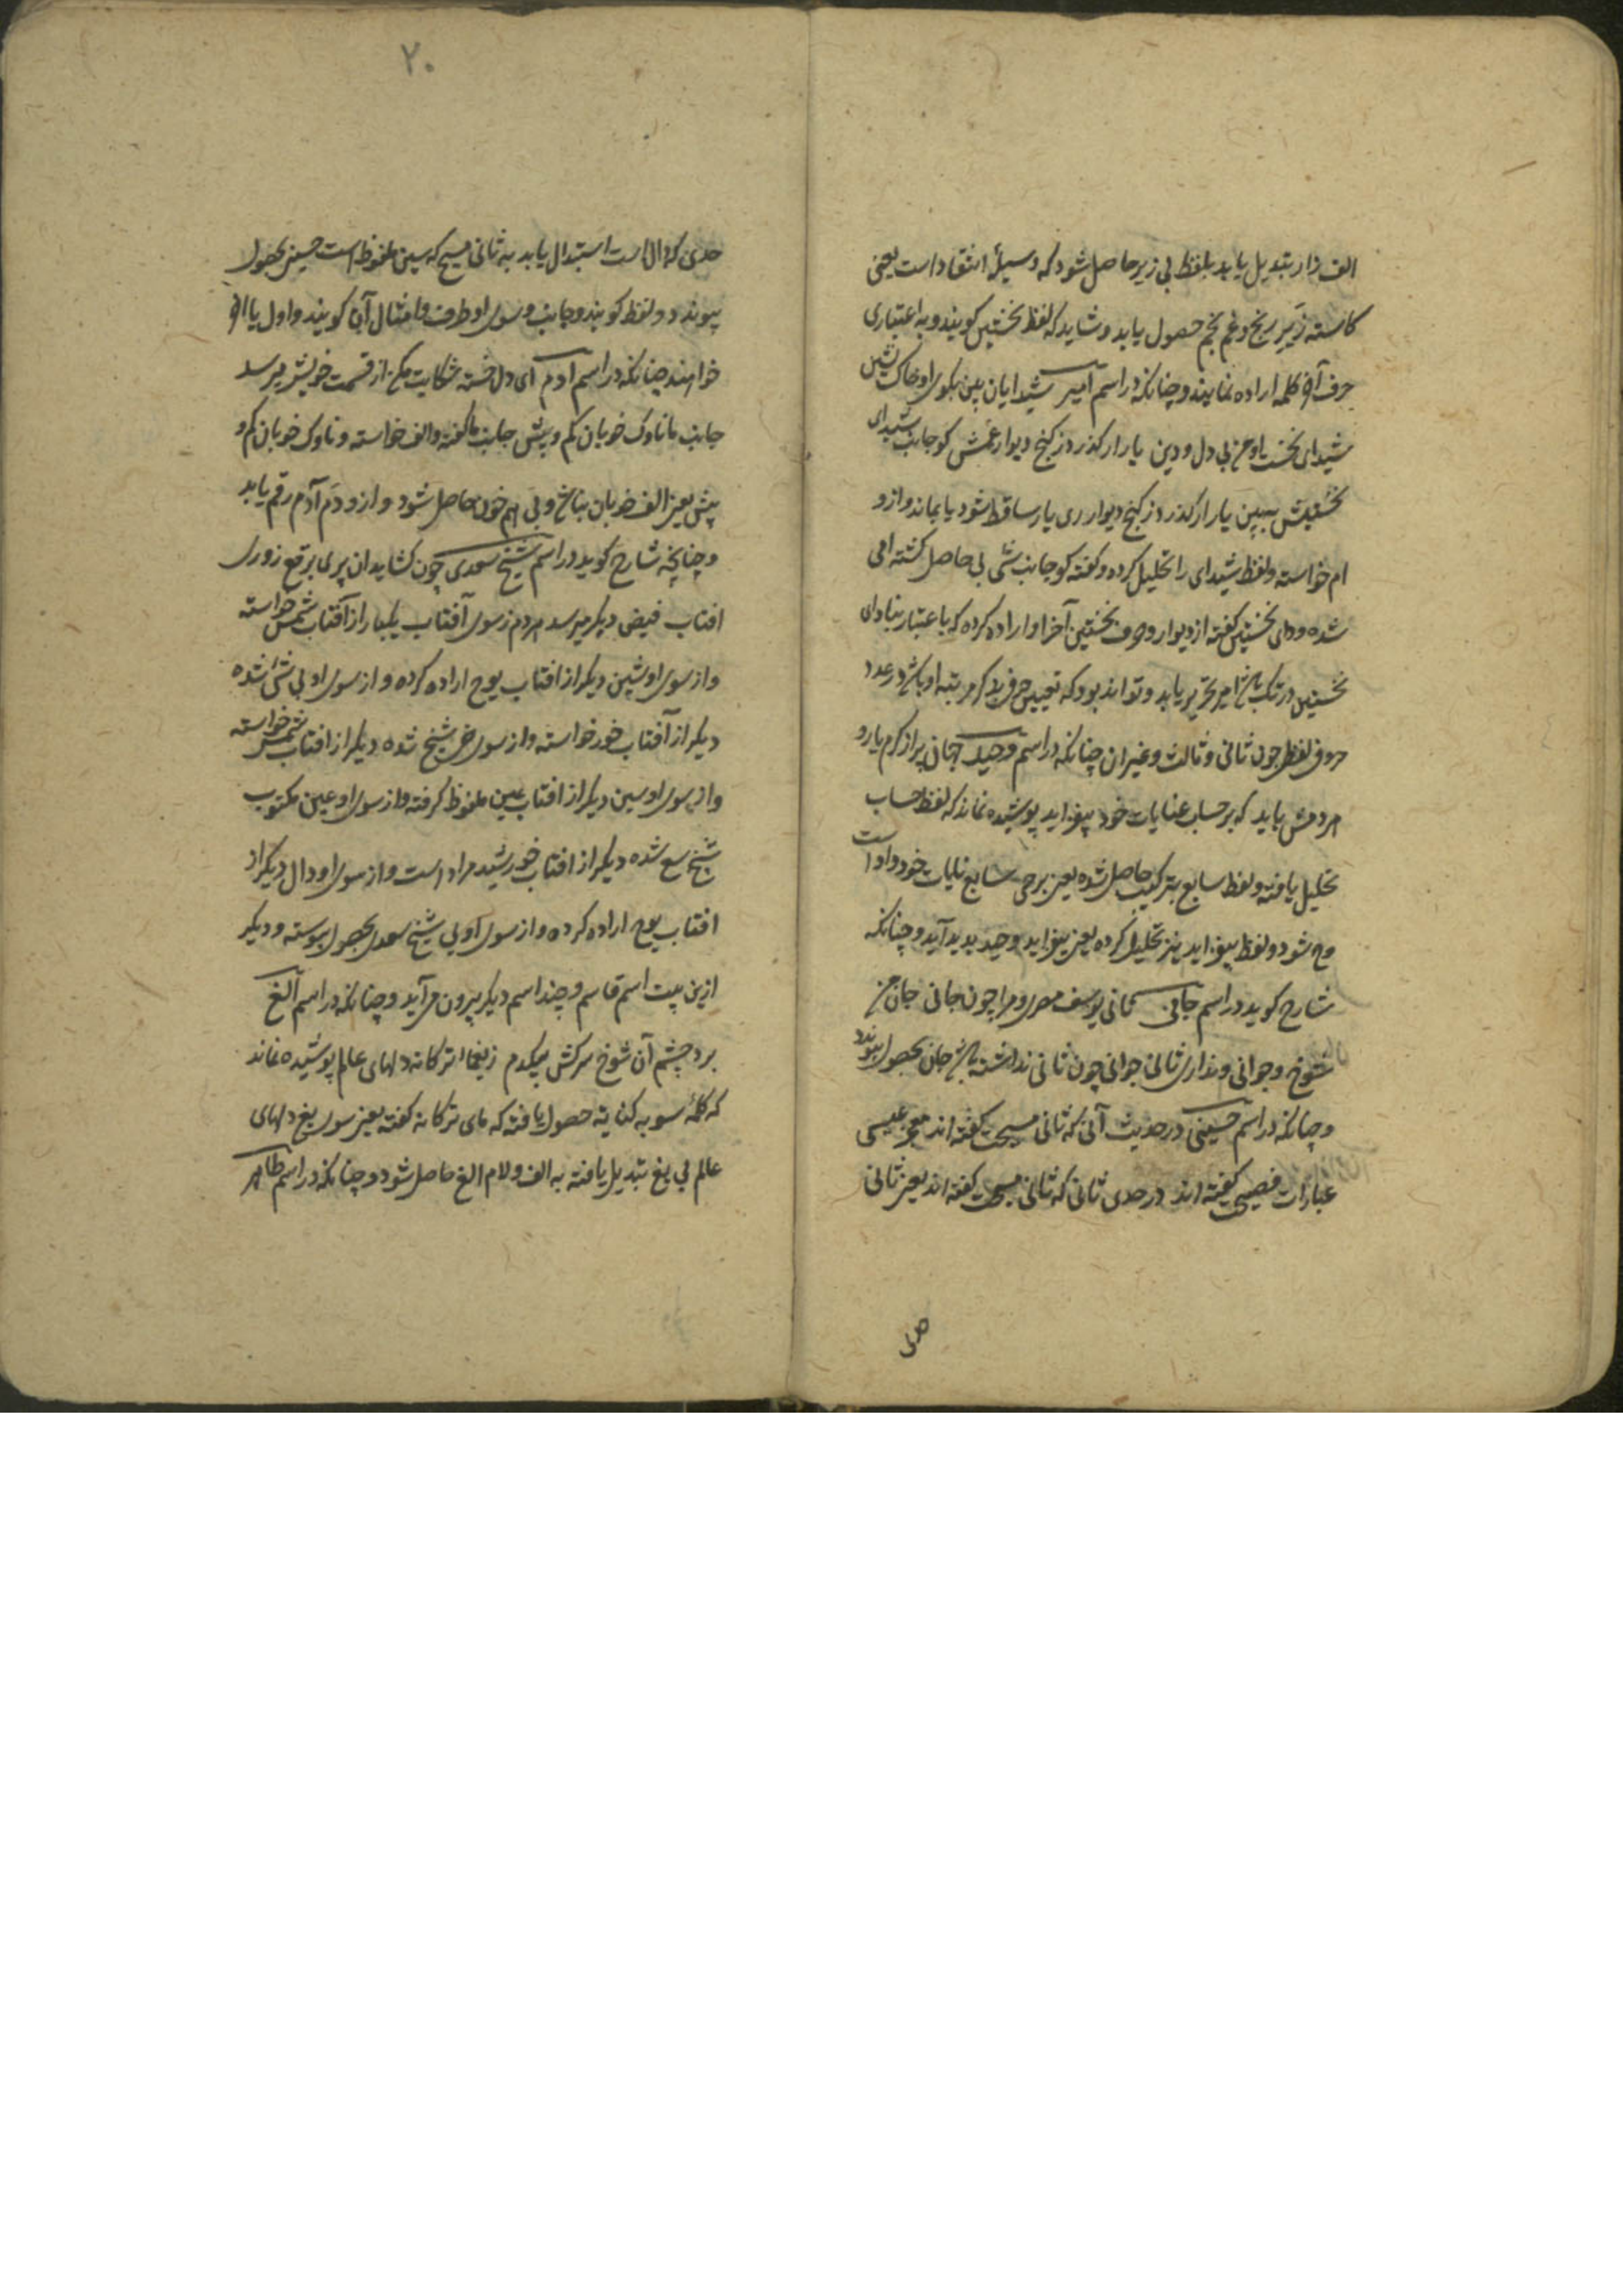 الف زار تبدیل یابد بلفظ بی زیر حاصل شود که وسیلهٔ انتقاد است یعنی
کاسته زیر رنج و غم نجم حصول یابد و شاید که لفظ نخستین کویند و به اعتباری
حرف آخر کلمه اراده نمایند و چنانکه در اسم امیر شیدایان بین بکوی او خاک نشین
شیدای نخست او من بی دل و دین یار ار کذرد ز کنج دیوار غمش کو جانب شیدای
نخستینش ببین یار ار کذرد ز کنج دیوار ری یار ساقط شود یا بماند و از و
ام خواسته و لفظ شیدای را تحلیل کرده و کفته کو جانب شی بی حاصل کشته امی
شده و دای نخستین کفته از دیوار و حرف نخستین آخر او اراده کرده که باعتبار بنا دای
نخستین در ترکیب امیر تحریر یابد و تواند بود که تعیین حرفی بذکر مرتبه او باشد در عدد
حروف لفظ چون ثانی و ثالث و غیر ان چنانکه در اسم وحید جهان پر از کرم یار و
مردمش باید که بر حساب عنایات خود بیفزاید پوشیده نماند که لفظ حساب
تحلیل یافته و لفظ سابع بترکیب حاصل شده یعنی برحی سابع نایات خود واو است
وح شود و لفظ بیفزاید نیز تحلیل کرده یعنی بیفزاید وحید پدید آید و چنانکه
شارح کوید در اسم جانی کمانی یوسف مصر و مرا چون جانی جان من
شوخ و جوانی و نداری ثانی جوانی چون ثانی نداشته باشد جان بحصول پیوندد
و چنانکه در اسم حسینی در حدیث آنی که ثانی مسیحت کفته اند معجز عیسی
عبارات فصیحی کفته اند در حدی ثانی که ثانی مسیحت کفته اند یعنی ثانی
حدی
۲۰
حدی که دال است استبدال یابد به ثانی مسیح که سین ملفوظ است حسینی بحصول
پیوندد و لفظ کویند و جانب و سوی او طرف و امثال آن کویند و اول یا اخر
خواهند چنانکه در اسم آدم ای دل خسته شکایت مکن از قسمت خویش میرسد
جانب ما ناوک خوبان کم و بیش جانب ما کفته و الف خواسته و ناوک خوبان کم و
پیش یعنی الف خوبان بناخ و بی هم خون حاصل شود و از و دَم آدم رقم یابد
و چنانچه شارح کوید در اسم شیخ سعدی چون کشاید ان پری برقع ز روی
افتاب فیض دیکر میرسد مردم ز سوی آفتاب یکبار از آفتاب شمس خواسته
و از سوی او شین دیکر از افتاب یوح اراده کرده و از سوی او بی شی شده
دیکر از آفتاب خور خواسته و از سوی خی شیخ شده دیکر از افتاب شمس خواسته
و از سوی او سین دیکر از افتاب عین ملفوظ کرفته و از سوی او عین مکتوب
شیخ سع شده دیکر از افتاب خورشید مراد است و از سوی او دال دیکر از
افتاب یوح اراده کرده و از سوی او بی شیخ سعدی بحصول پیوسته و دیکر
ازین بیت اسم قاسم و چند اسم دیکر بیرون می آید و چنانکه در اسم الغ
برد چشم آن شوخ سرکش بیکدم ز یغما ترکانه دلهای عالم پوشیده نماند
که کلمهٔ سو به کنایة حصول یافته که مای ترکانه کفته یعنی سوی یغ دلهای
عالم بی یغ تبدیل یافته به الف و لام الغ حاصل شود و چنانکه در اسم طاهر